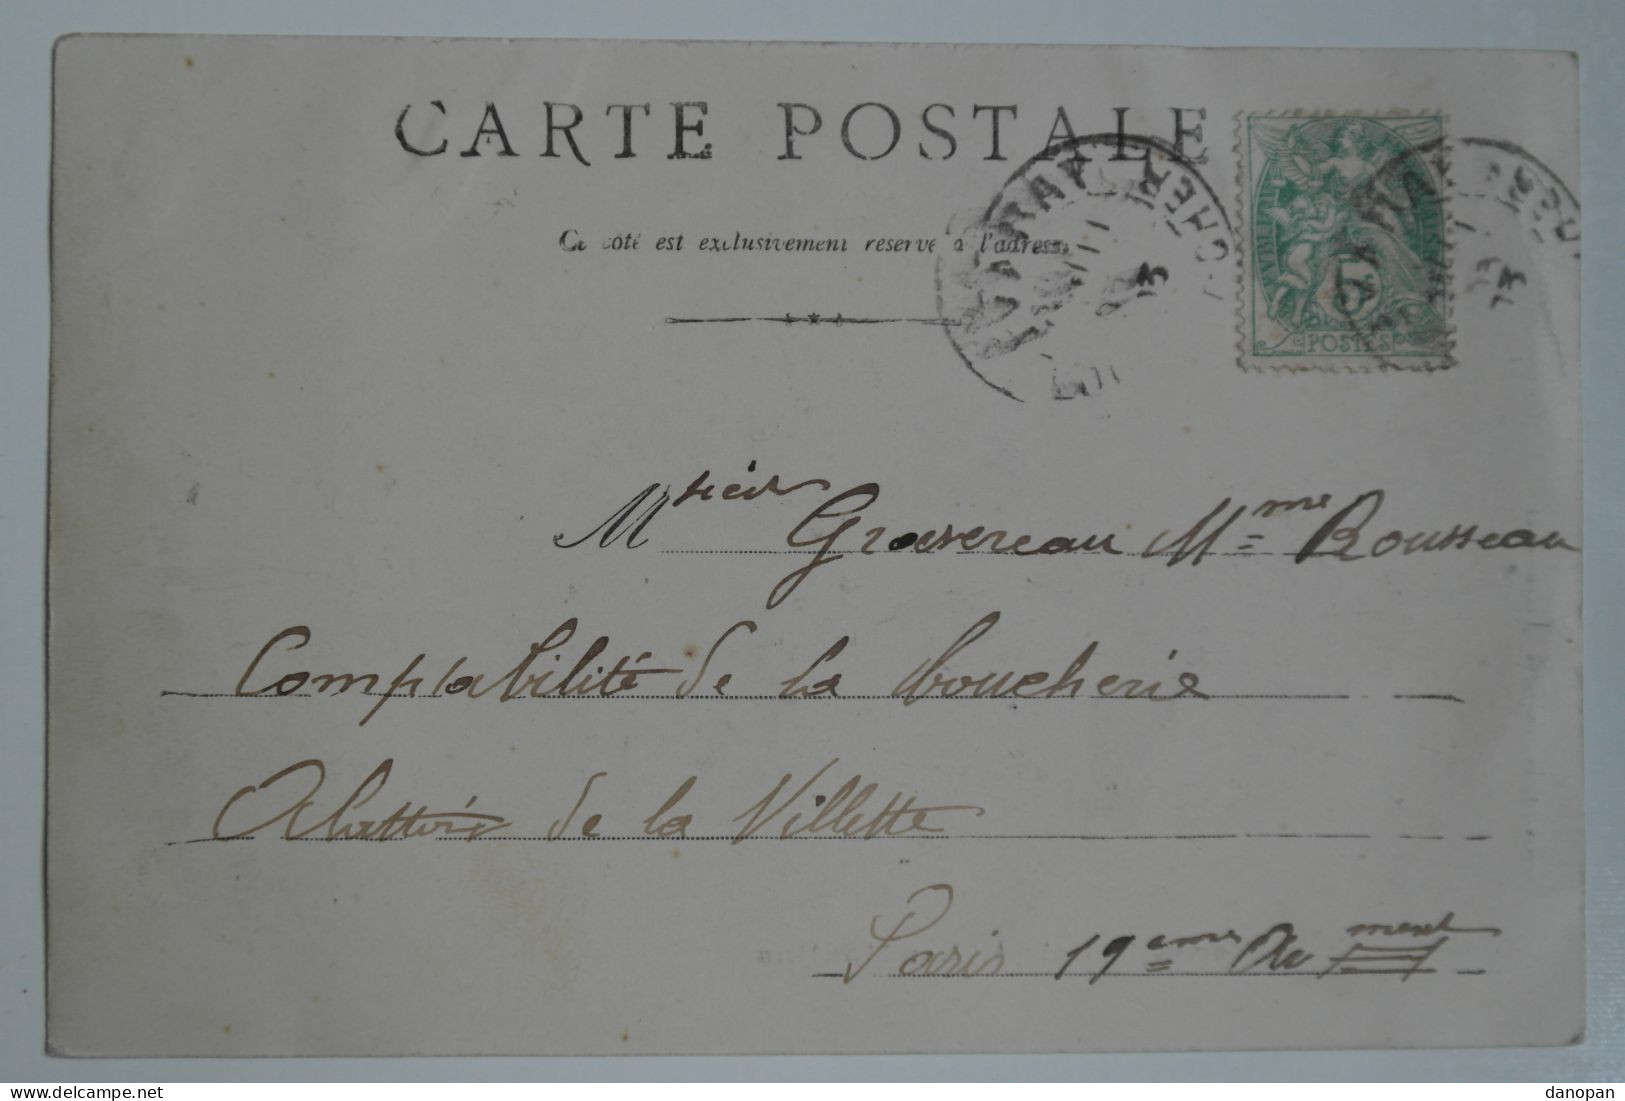 CARTE POSTALE
Ce côté est exclusivement réservé à l'adresse
5
POSTES
CHER
Msieur Mme Rousseau
Comptabilité de la boucherie
Abattoir de la Villette
Paris 19eme
delcampe.net
danopan